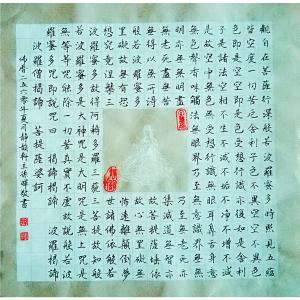 觀自在菩薩行深般若波羅蜜多時照見五蘊
皆空度一切苦厄舍利子色不異空空不異色
色即是空空即是色受想行識亦復如是舍利
子是諸法空相不生不滅不垢不淨不增不減
是故空中無色無受想行識無眼耳鼻舌身意
無色聲香味觸法無眼界乃至無意識界無無
明亦無無明盡乃至無老死亦
無老死盡無苦集滅道無智亦
無得以無所得故菩提薩埵依
般若波羅蜜多故心無罣礙無
罣礙故無有恐怖遠離顛倒夢
想究竟涅槃三世諸佛依般若
波羅蜜多故得阿耨多羅三藐三菩提故知般
若波羅蜜多是大神咒是大明咒是無上咒是
無等等咒能除一切苦真實不虛故說般若波
羅蜜多咒即說咒曰 揭諦揭諦 波羅揭諦
波羅僧揭諦 菩提薩婆訶
佛曆二五六零年夏月靜觀軒王暉敬書